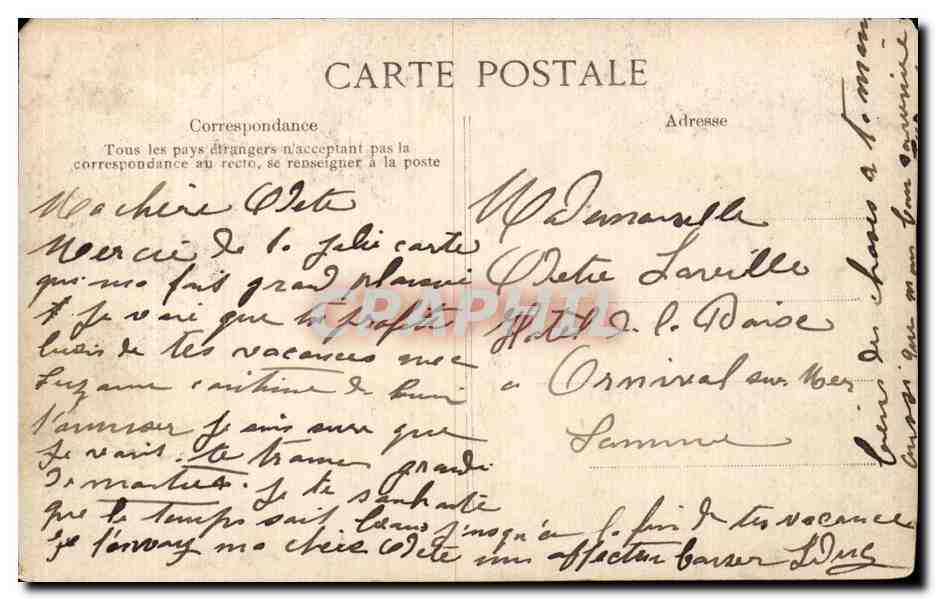 CARTE POSTALE
Correspondance
Tous les pays étrangers n'acceptant pas la
correspondance au recto, se renseigner à la poste
Adresse
Ma chère Odete
Mercie de la jolie carte
qui ma fait grand plaisir
je voi que tu profite
de tes vacances avec
Suzanne continue de bien
t'amuser je suis sure que
je vait te trouver grandi
je te souhaite
que le temps soit beau j'usqu'a la fin de tes vacance
je t'envoy ma chere Odete un affectueu baiser
Mademoiselle
Odette Laville
Hotel de la Plage
a Onival sur Mer
Somme
bien des choses a ta maman
ainsi que mon bon souvenir
CRAPHIL